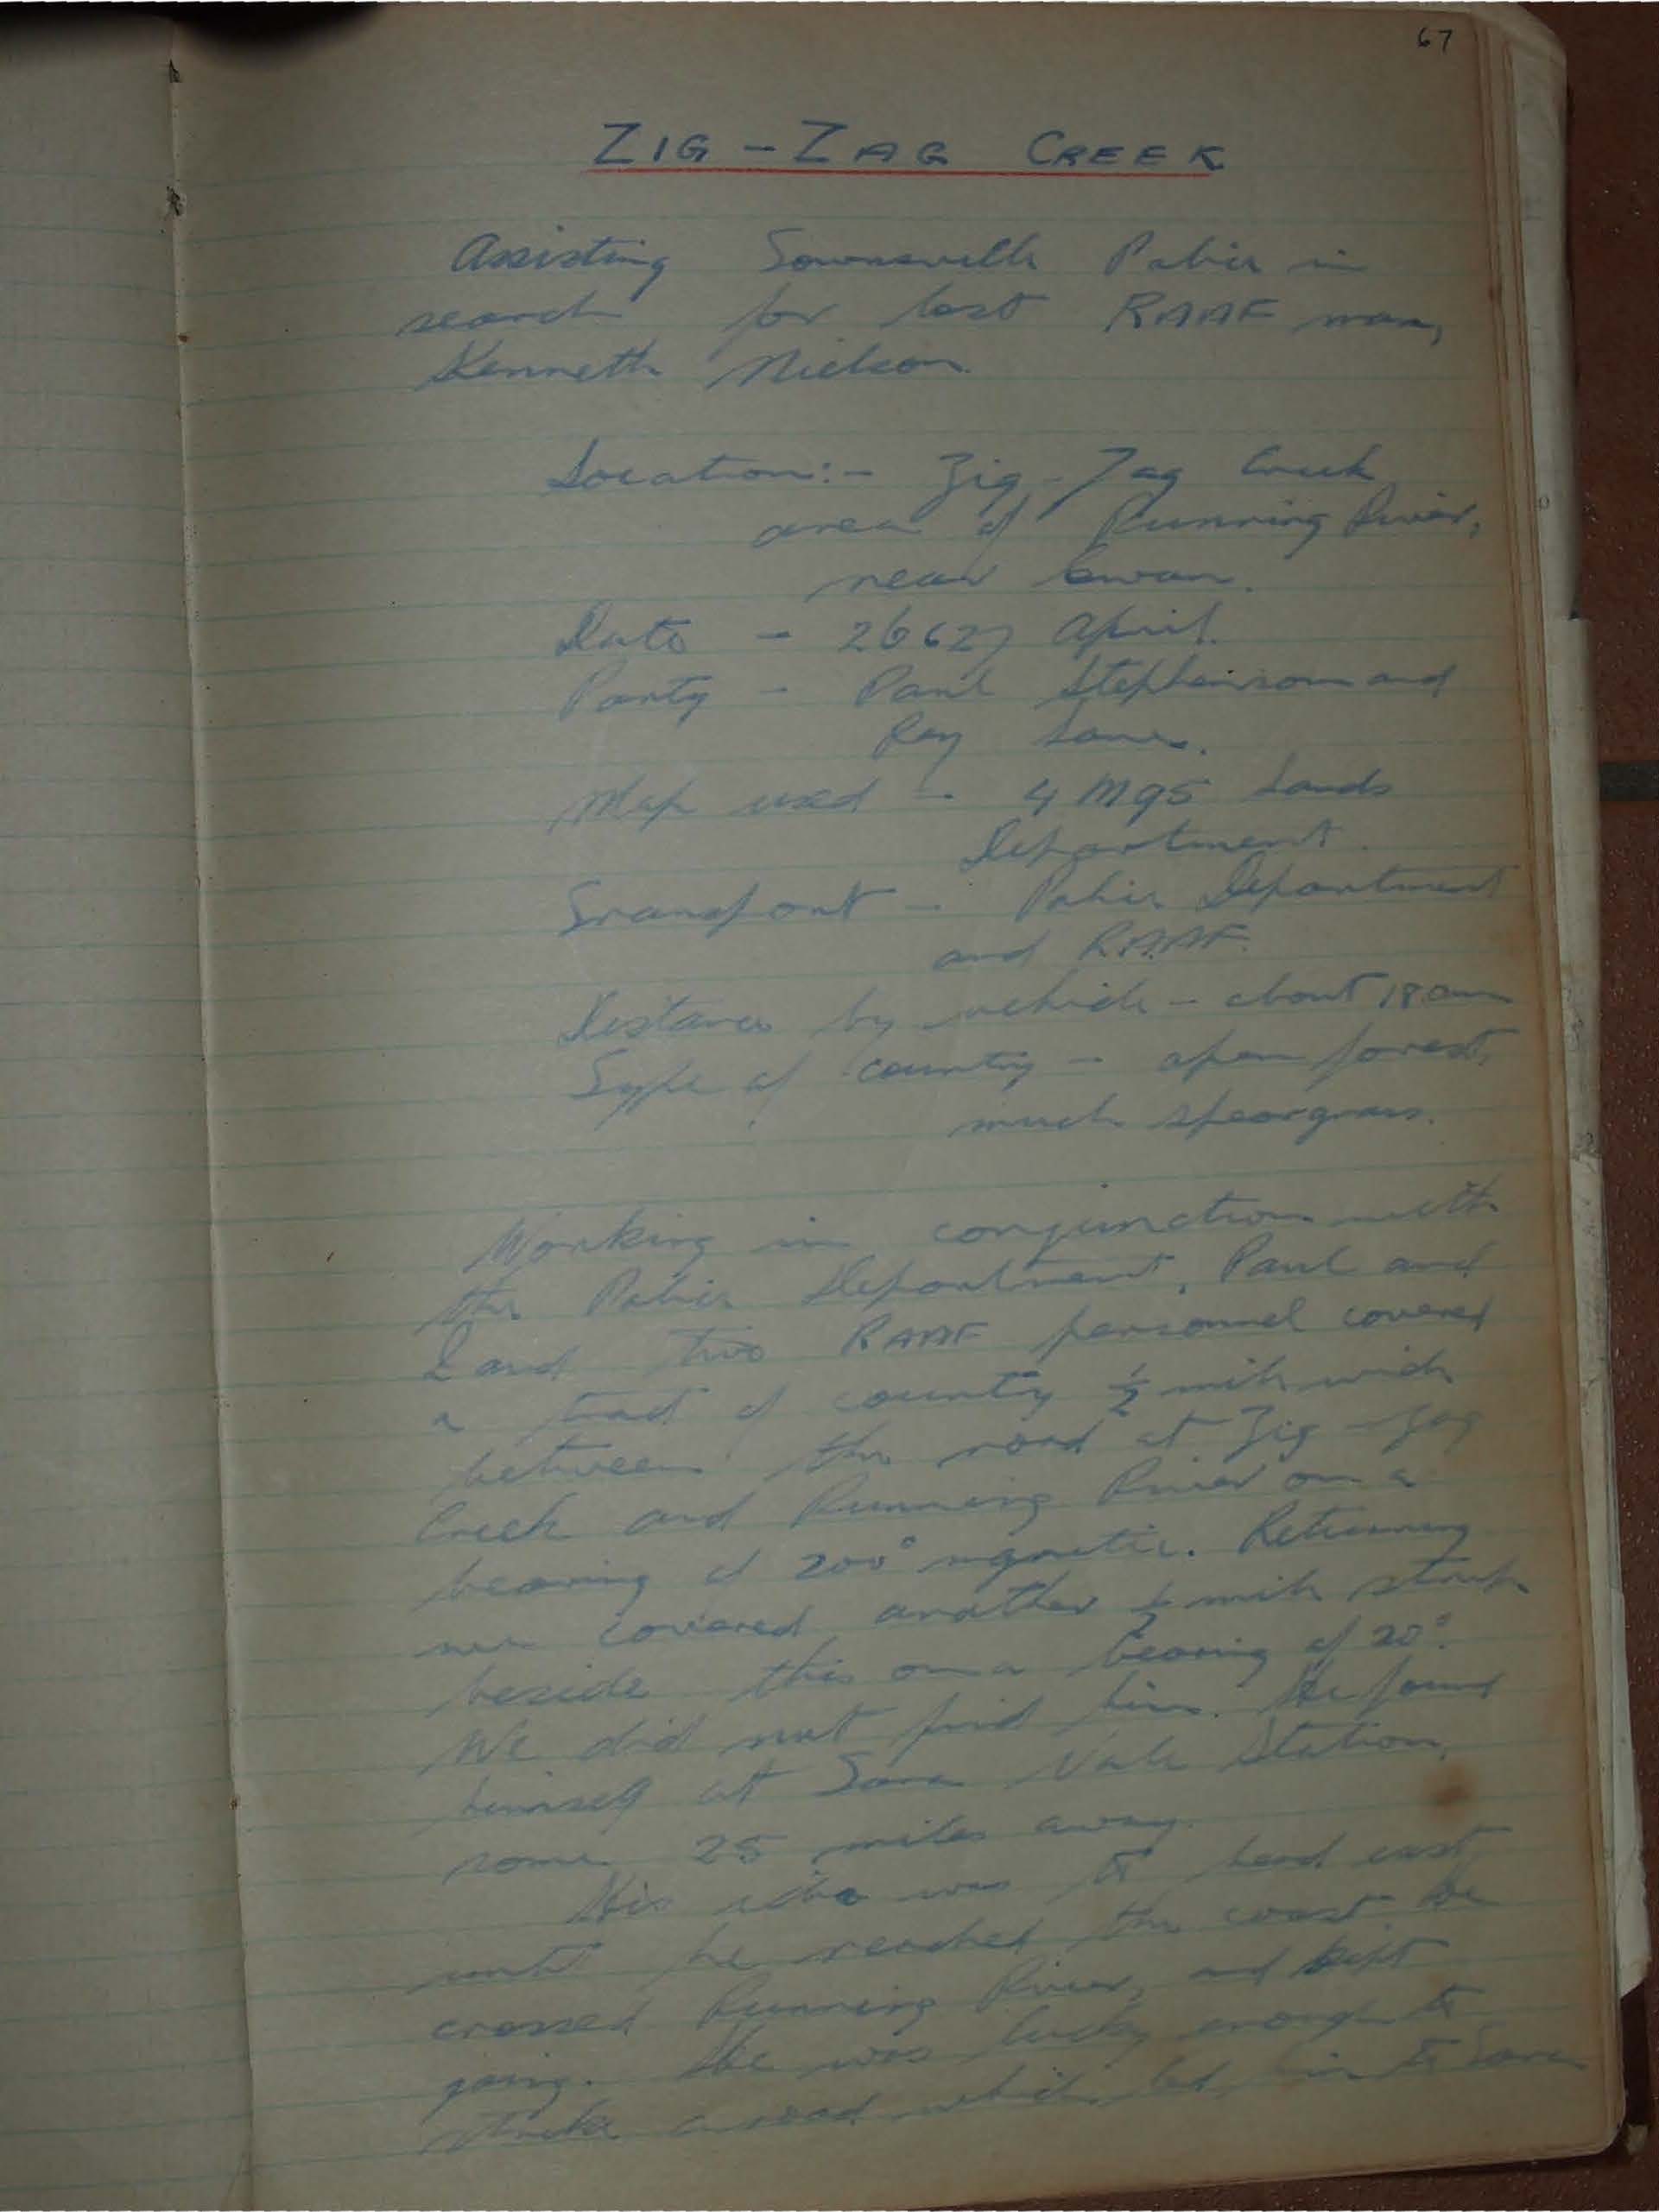 67
ZIG-ZAG CREEK
Assisting Townsville Police in
search for lost RAAF man,
Kenneth Nielson.
Location:- Zig-Zag Creek
area of Running River,
near Ewan.
Date - 26 & 27 April.
Party - Paul Stephenson and
Ray
Map used - 4 M95 Lands
Department.
Transport - Police Department
and RAAF.
Distance by vehicle - about 180
Type of country - open forest,
much speargrass.
Working in conjunction with
the Police Department, Paul and
I and two RAAF personnel covered
a of country ½ mile wide
between the road at Zig-Zag
Creek and Running River on a
bearing of 200° mgnetic. Returning
we covered another ½ mile
beside this on a bearing of 20°.
We did not find him. He found
himself at Vale Station,
some 25 miles away.
His idea was to head east
until he reached the coast. He
crossed Running River, and kept
going. He was lucky enough to
strike a road which led him to